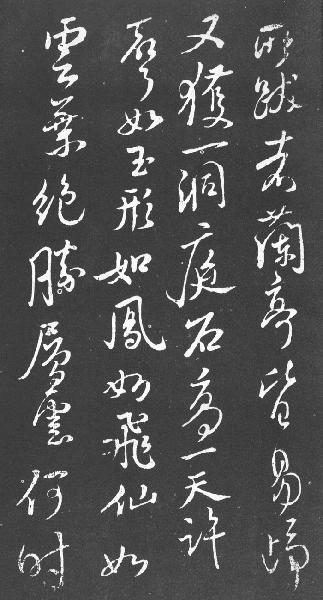 所跋蘭亭皆易歸
又獲一洞庭石高一天許
聲如玉形如鳳如飛仙如
雲葉絶勝層雲何時